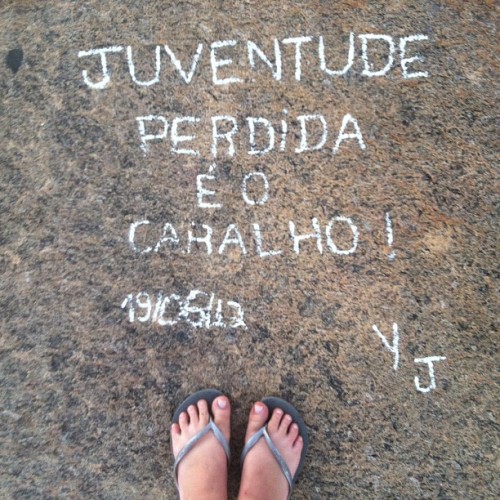 JUVENTUDE
PERDiDA
É O
CARALHO!
19/06/12
Y J